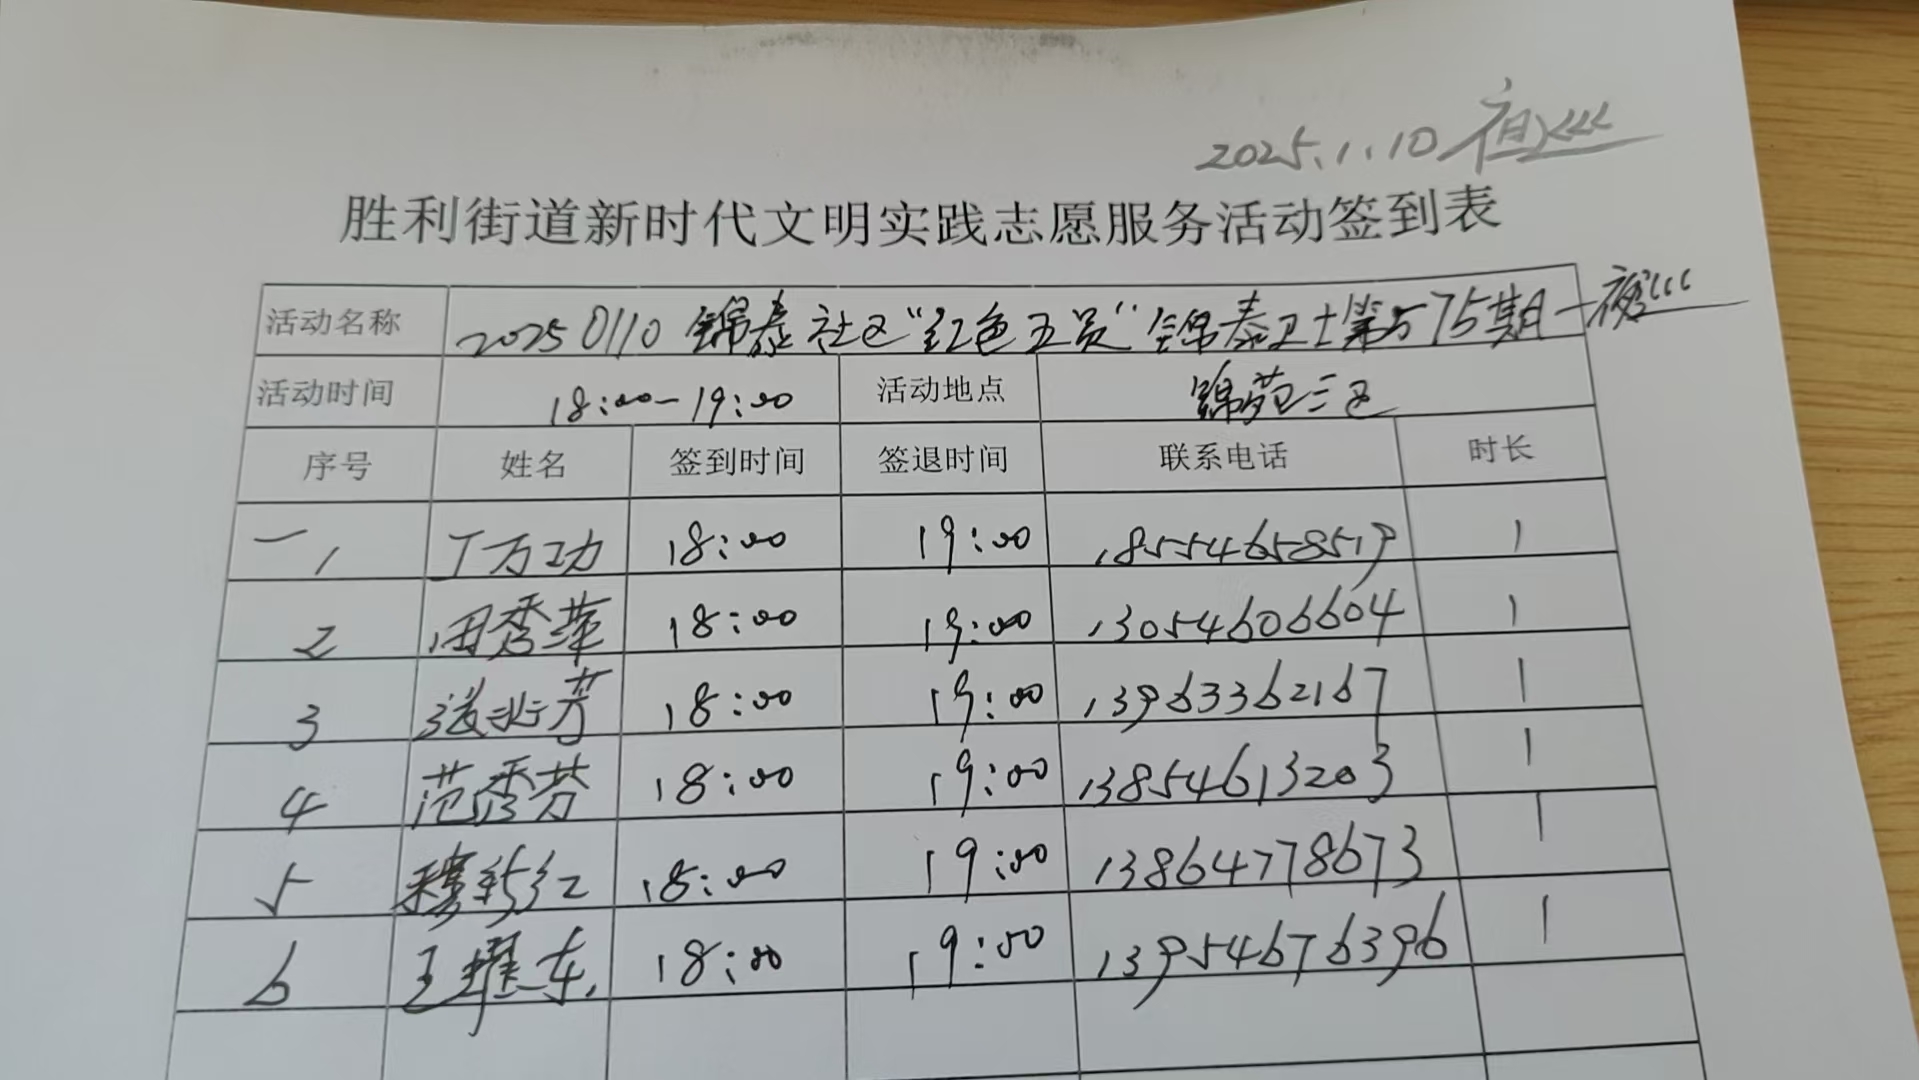 2025.1.10 夜巡
胜利街道新时代文明实践志愿服务活动签到表
活动名称 20250110 锦泰社区“红色五员”锦泰卫士第575期—夜巡
活动时间 18:00—19:00 活动地点 锦苑三区
序号 姓名 签到时间 签退时间 联系电话 时长
一1 丁万功 18:00 19:00 18554658519 1
2 田秀萍 18:00 19:00 13054606604 1
3 18:00 19:00 13963362167 1
4 范秀芬 18:00 19:00 13854613203 1
5 穆新红 18:00 19:00 13864778673 1
6 18:00 19:00 13954676396 1